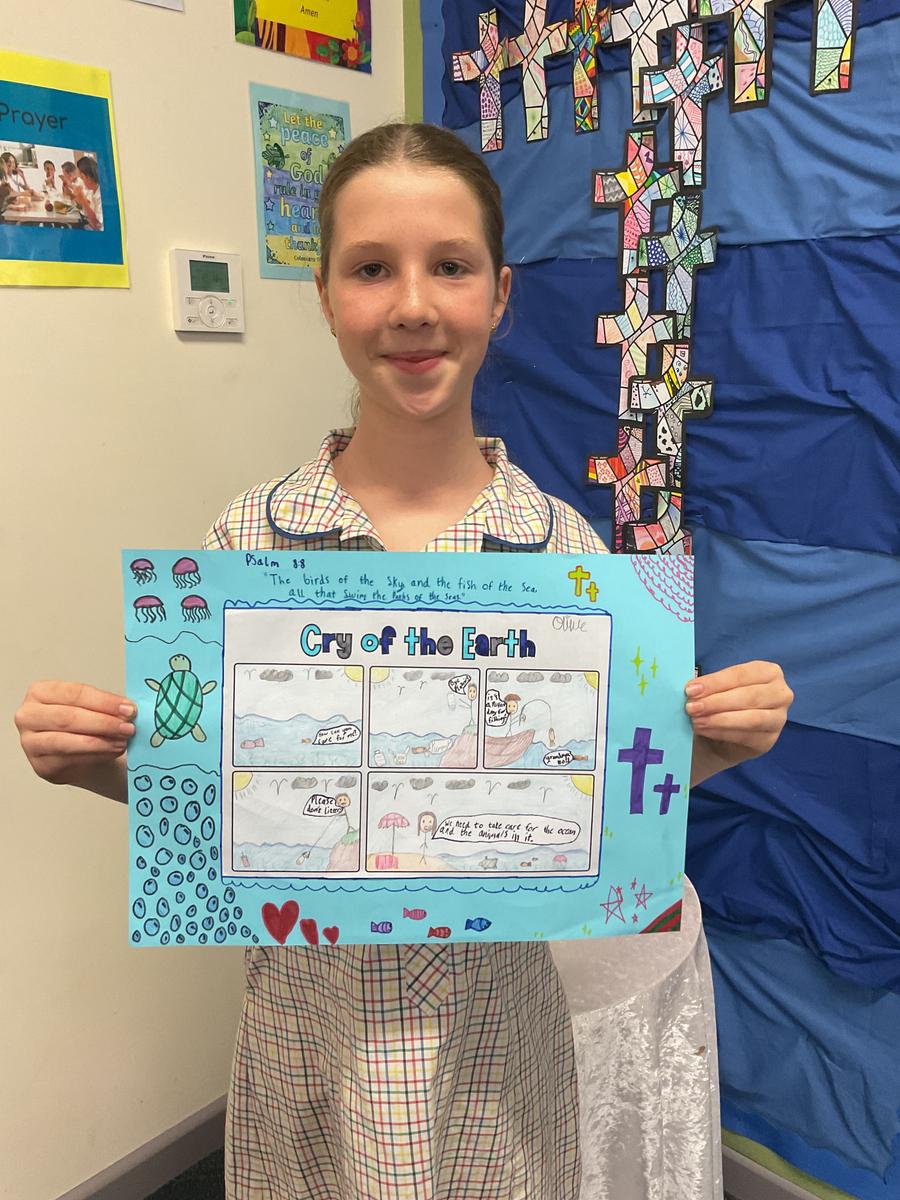 Amen
Prayer
Let the
peace
of
God
rule in
hear
and
thank
Psalm 8:8
"The birds of the Sky and the fish of the Sea,
all that Swim the Paths of the Seas."
Olive
Cry of the Earth
how can you
care for me?
isn't
a nice
day for
fishing
Please
don't litter
We need to take care for the ocean
and the animals in it.